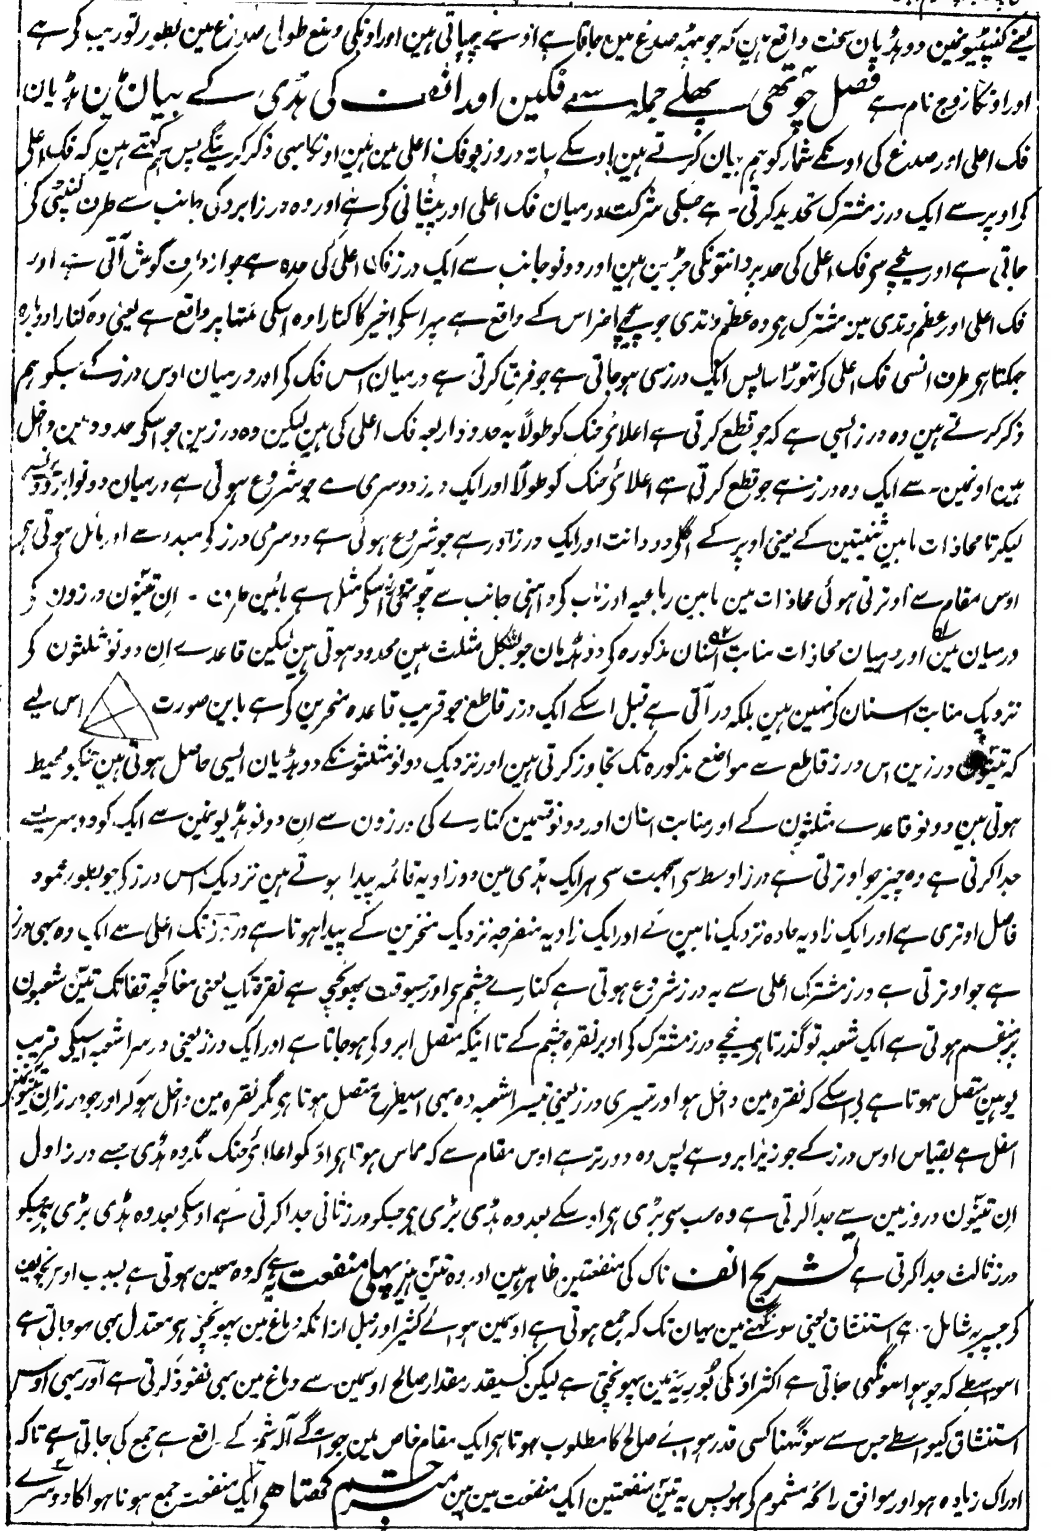 یعنے کنپٹیونمین دو ہڈیان سخت واقع ہین کہ جو پٹھہ صدغ مین جاتا ہے اوسے چھپاتی ہین اور اونکی وضع طول صدغ مین بطور توریب کے ہے
اور اونکا زوج نام ہے فصل چوتھی پھلے جملہ سے فکین اور انف کی ہڈی کے بیان مین ہڈیان
فک اعلی اور صدغ کی اونکے شمار کو ہم بیان کرتے ہین ساتھ دروز جو فک اعلی مین ہین اونکا بھی ذکر کرینگے پس ہم کہتے ہین کہ فک اعلی
کو اوپر سے ایک درز مشترک تحدید کرتی ہے جسکی شرکت درمیان فک اعلی اور پیشانی کے ہے اور وہ درز ابرو کی جانب سے طرف کنپٹی کے
جاتی ہے اور نیچے سے فک اعلی کی حد پر دانتونکی جڑین ہین اور دونو جانب سے ایک درز فک اعلی کی حد ہے جو از طرف گوش آتی ہے اور
فک اعلی اور عظم وتدی مین مشترک ہے وہ عظم وتدی جو پیچھے اضراس کے واقع ہے پھر اسکے اخیر کا کنارا وہ اسکی منتہا پر واقع ہے یعنی وہ کنارا دوبارہ
جھکتا ہے طرف انسی فک اعلی کے تھوڑا سا پس ایک درز سی ہوجاتی ہے جو فرق کرتی ہے درمیان اس فک کے اور درمیان اوس درز کے جسکو ہم
ذکر کرتے ہین وہ درز ایسی ہے کہ جو قطع کرتی ہے اعلائے حنک کو طولاً یہ حدود اربعہ فک اعلی کی ہین لیکن وہ درزین جو اسکی حدود مین داخل
ہین اونمین سے ایک وہ درز ہے جو قطع کرتی ہے اعلائے حنک کو طولاً اور ایک درز دوسری ہے جو شروع ہوتی ہے درمیان دونو ابرو سے
لیکر تا محاذات مابین ثنیتین کے یعنی اوپر کے اگلے دو دانت اور ایک درز اور ہے جو شروع ہوتی ہے دوسری درز کے مبدء سے اور مائل ہوتی ہے
اوس مقام سے اوترتی ہوئی محاذات مین مابین رباعیہ اور ناب کے داہنی جانب سے چوتھی اسکی مثل ہے بائین طرف ۔ ان تینون درزون کے
درمیان مین اور درمیان محاذات منابت اسنان مذکورہ کے دو ہڈیان جو بشکل مثلث ہین محدود ہوتی ہین لیکن قاعدے ان دونو مثلثون کے
نزدیک منابت اسنان کے نہین ہین بلکہ در آتی ہے قبل اسکے ایک درز قاطع جو قریب قاعدہ منخرین کے ہے باین صورت اس لیے
کہ تینون درزین اس درز قاطع سے مواضع مذکورہ تک تجاوز کرتی ہین اور نزدیک دونو مثلثونکے دو ہڈیان ایسی حاصل ہوتی ہین جنکو محیط
ہوتی ہین دونو قاعدے مثلثون کے اور منابت اسنان اور دونو قسمین کنارے کی درزون سے ان دونو ہڈیونمین سے ایک کو دوسرے سے
جدا کرتی ہے وہ چیز جو اوترتی ہے درز اوسط سے اسی جہت سے ہر ایک ہڈی مین دو زاویہ قائمہ پیدا ہوتے ہین نزدیک اس درز کے جو بطور عمود
فاصل اوتری ہے اور ایک زاویہ حادہ نزدیک نابین کے اور ایک زاویہ منفرجہ نزدیک منخرین کے پیدا ہوتا ہے دروز فک اعلی سے ایک وہ بھی درز
ہے جو اوترتی ہے درز مشترک اعلی سے یہ درز شروع ہوتی ہے کنارے چشم سے اور جسوقت پہونچی ہے نقرۃ تک یعنی مغاکچہ قفا تک تین شعبون
پر منقسم ہوتی ہے ایک شعبہ تو گذرتا ہے نیچے درز مشترک کے اوپر نقرہ چشم کے تا اینکہ متصل ابرو کے ہوجاتا ہے اور ایک درز یعنی دوسرا شعبہ اسیکی قریب
یوہین متصل ہوتا ہے بے اسکے کہ نقرہ مین داخل ہو اور تیسری درز یعنی تیسرا شعبہ وہ بھی اسیطرح متصل ہوتا ہے مگر نقرہ مین داخل ہوکر اور جو درز ان تینونمین
اسفل ہے بقیاس اوس درز کے جو زیر ابرو ہے پس وہ دورتر ہے اوس مقام سے کہ مماس ہوتا ہے اوسکو اعلائے حنک مگر وہ ہڈی جسے درز اول
ان تینون دروز مین سے جدا کرتی ہے وہ سب سے بڑی ہے اوسکے بعد وہ ہڈی بڑی ہے جسکو درز ثانی جدا کرتی ہے اوسکے بعد وہ ہڈی بڑی ہے جسکو
درز ثالث جدا کرتی ہے تشریح انف ناک کی منفعتین ظاہر ہین اور وہ تین ہین پہلی منفعت یہ ہے کہ وہ معین ہوتی ہے بسبب اوس تجویف
کے جسپر یہ شامل ہے استنشاق یعنی سونگھنے مین یہان تک کہ جمع ہوتی ہے اوسمین ہوائے کثیر اور قبل ازانکہ دماغ مین پہونچے ہر معتدل بھی ہوجاتی ہے
اسواسطے کہ جو ہوا سونگھی جاتی ہے اکثر اونکی تو ریہ مین پہونچتی ہے لیکن کسیقدر مقدار صالح اوسمین سے دماغ مین بھی نفوذ کرتی ہے اور بھی اوس
استنشاق کیواسطے جس سے سونگھنا کسی قدر ہوائے صالح کا مطلوب ہوتا ہے ایک مقام خاص مین جو آگے آلہ شم کے واقع ہے جمع کی جاتی ہے تاکہ
ادراک زیادہ ہو اور موافق رائحہ مشموم کے ہو پس یہ تین منفعتین ایک منفعت مین ہین مترجم کہتا ہے ایک منفعت جمع ہونا ہوا کا دوسرے